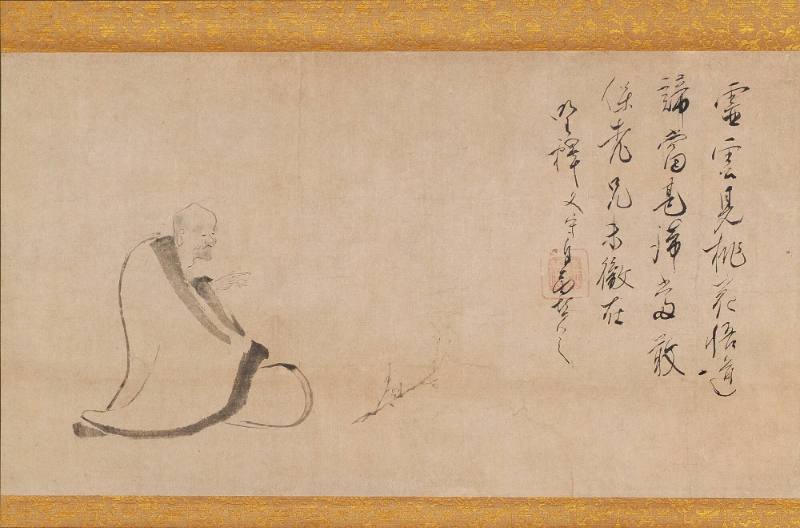 霊雲見桃花悟道
諦當甚諦當敢
保老兄未徹在
釋文守自畫賛之